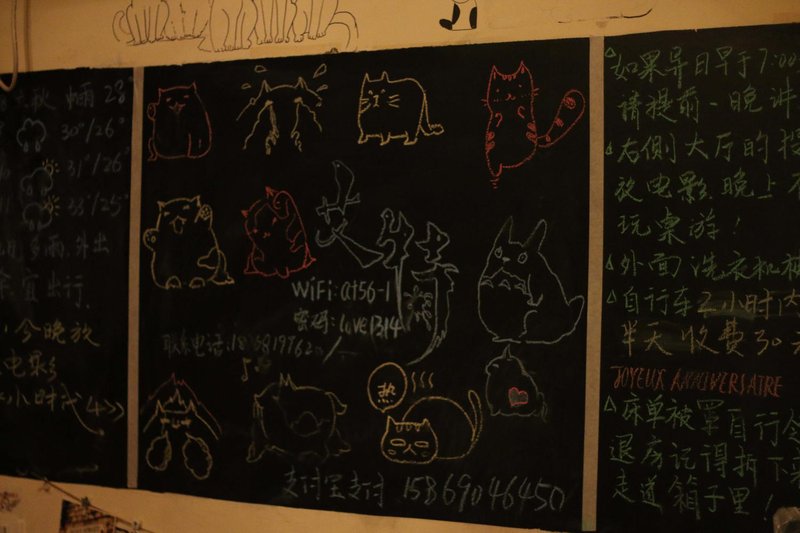 秋 中雨 28
30°/26°
31°/26
33°/25°
多雨,外出
宜出行.
今晚放
电影
小时代4>>
艾情
WiFi:at56-1
密码:love1314
联系电话:
热
支付宝支付 15869046450
如果异日早于7:00
请提前一晚讲
右侧大厅的投
放电影,晚上不
玩桌游!
外面洗衣机
自行车2小时内
半天收费30元
JOYEUX ANNIVERSAIRE
床单被罩自行
退房记得拆下来
走道箱子里!